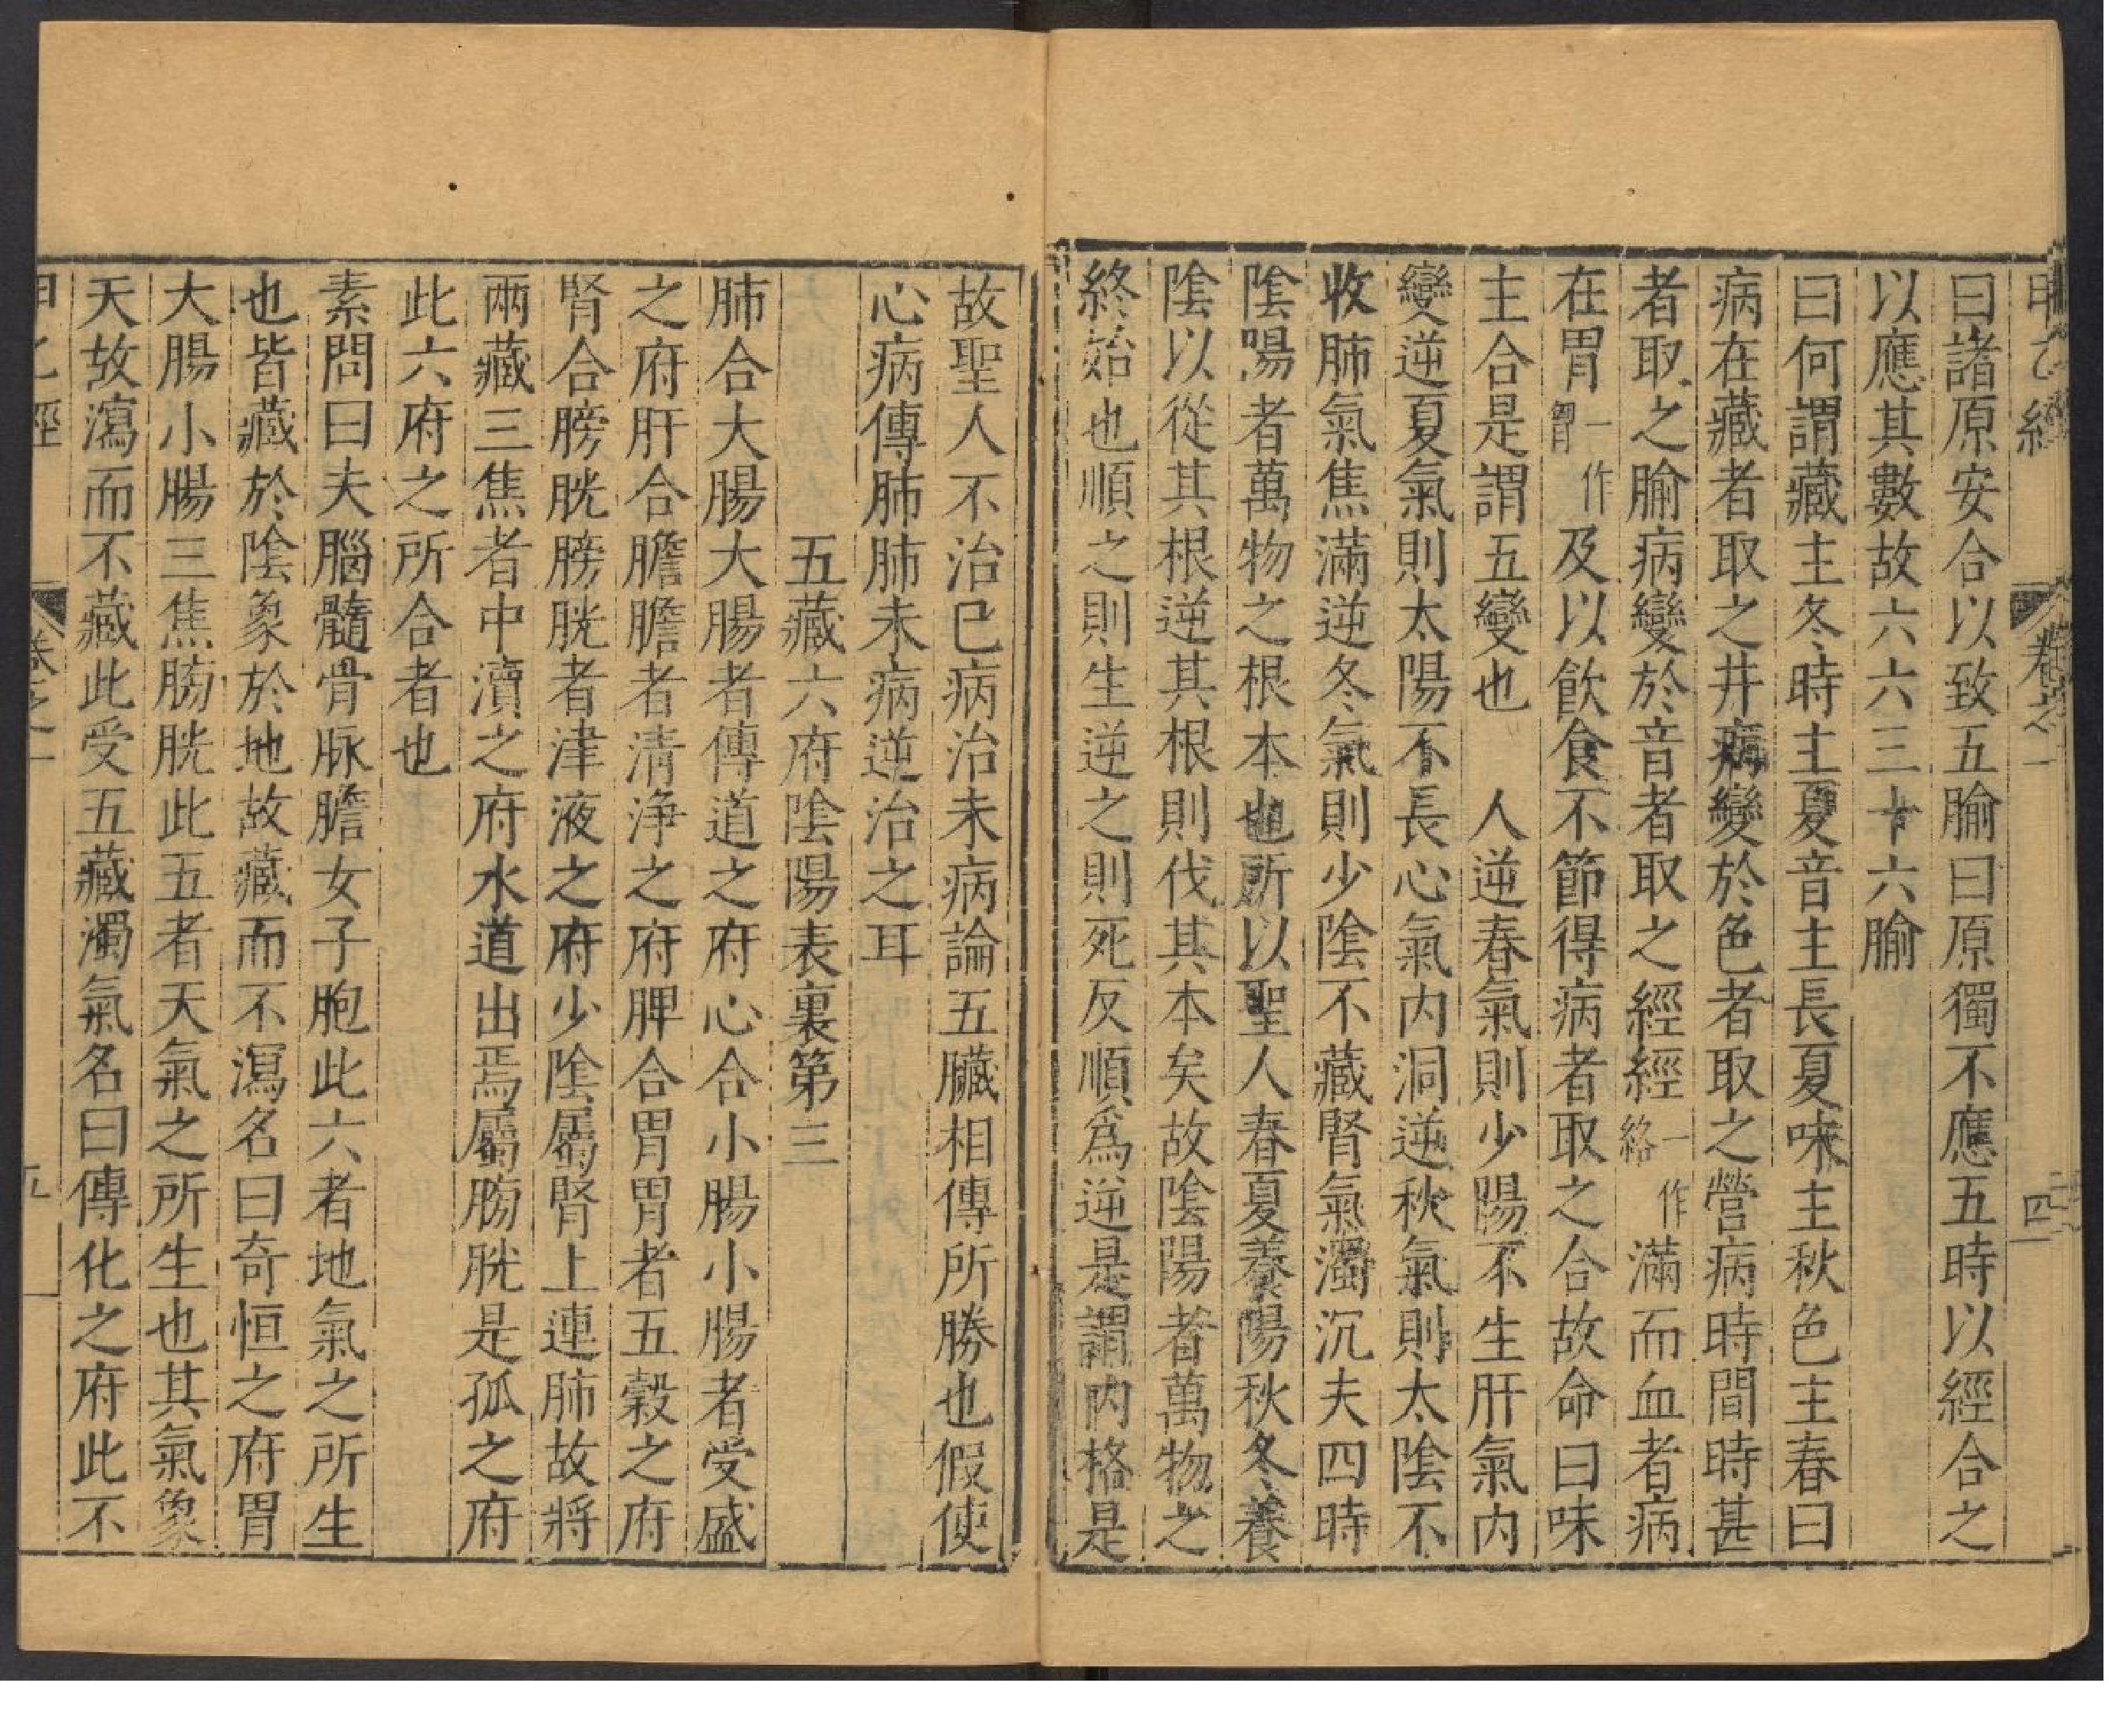 甲乙經 卷之一 四
曰諸原安合以致五腧曰原獨不應五時以經合之
以應其數故六六三十六腧
曰何謂藏主冬時主夏音主長夏味主秋色主春曰
病在藏者取之井病變於色者取之營病時間時甚
者取之腧病變於音者取之經經一作絡滿而血者病
在胃一作胷及以飲食不節得病者取之合故命曰味
主合是謂五變也　人逆春氣則少陽不生肝氣内
變逆夏氣則太陽不長心氣内洞逆秋氣則太陰不
收肺氣焦滿逆冬氣則少陰不藏腎氣濁沉夫四時
陰陽者萬物之根本也所以聖人春夏養陽秋冬養
陰以從其根逆其根則伐其本矣故陰陽者萬物之
終始也順之則生逆之則死反順爲逆是謂内格是
故聖人不治已病治未病論五臟相傳所勝也假使
心病傳肺肺未病逆治之耳
五藏六府陰陽表裏第三
肺合大腸大腸者傳道之府心合小腸小腸者受盛
之府肝合膽膽者清淨之府脾合胃胃者五穀之府
腎合膀胱膀胱者津液之府少陰屬腎上連肺故將
兩藏三焦者中瀆之府水道出焉屬膀胱是孤之府
此六府之所合者也
素問曰夫腦髓骨脉膽女子胞此六者地氣之所生
也皆藏於陰象於地故藏而不瀉名曰奇恒之府胃
大腸小腸三焦膀胱此五者天氣之所生也其氣象
天故瀉而不藏此受五藏濁氣名曰傳化之府此不
甲乙經 卷之一 五